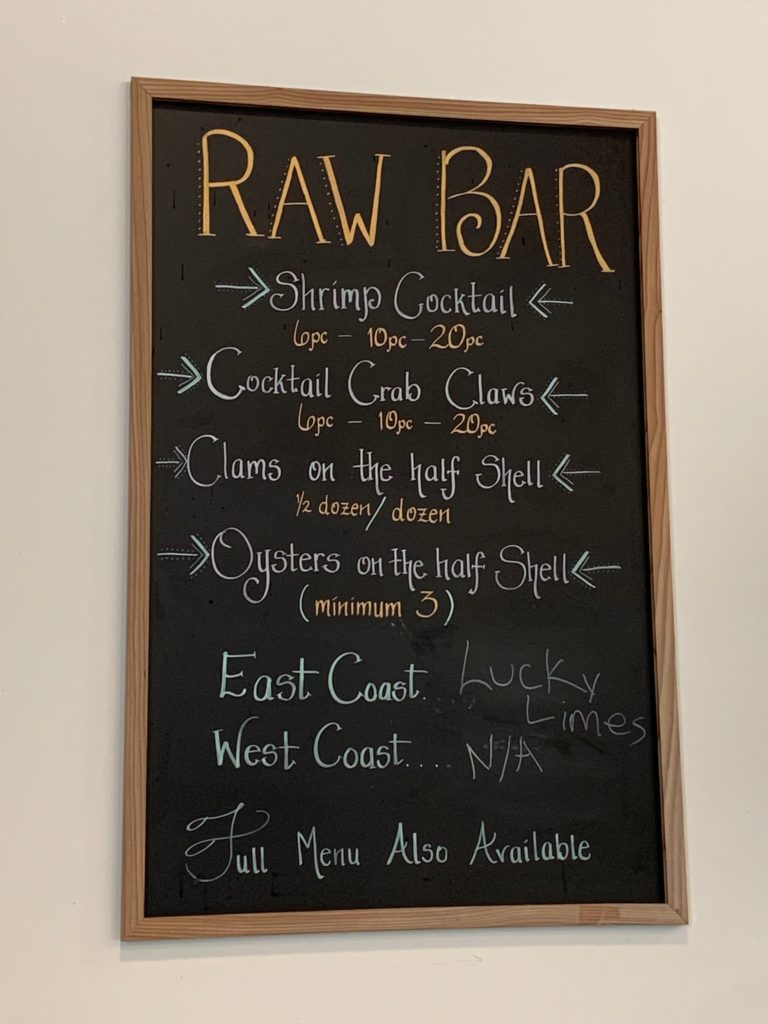 RAW BAR
Shrimp Cocktail
6pc – 10pc – 20pc
Cocktail Crab Claws
6pc – 10pc – 20pc
Clams on the half Shell
1/2 dozen/ dozen
Oysters on the half Shell
(minimum 3)
East Coast.. Lucky
Limes
West Coast.... N/A
Full Menu Also Available